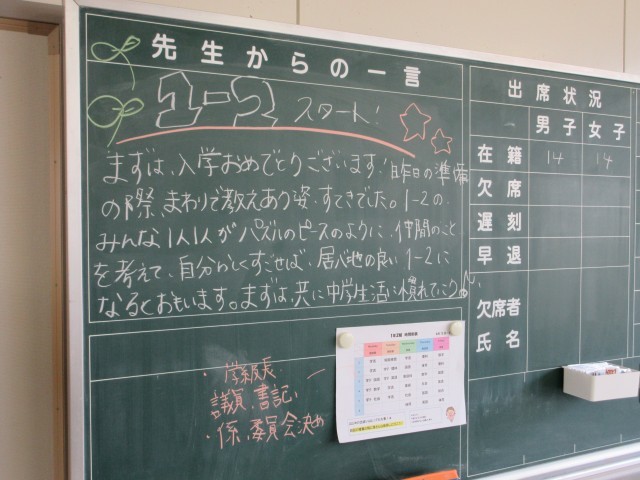 先生からの一言
1-2 スタート!
まずは、入学おめでとうございます!昨日の準備
の際、まわりで教えあう姿、すてきでした。1-2の
みんな1人1人がパズルのピースのように、仲間のこと
を考えて、自分らしくすごせば、居心地の良い1-2に
なるとおもいます。まずは、共に中学生活に慣れてこう♪
・学級長
議員、書記
・係、委員会決め
出席状況
男子 女子
在籍 14 14
欠席
遅刻
早退
欠席者
氏名